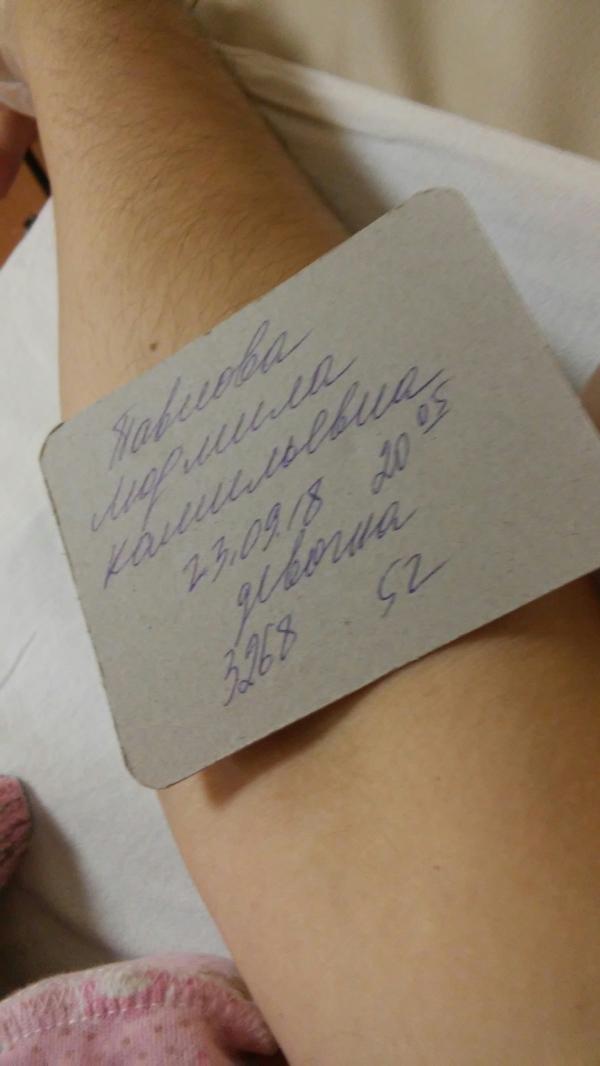 Павлова
Людмила
Камильевна
23.09.18 20 05
девочка
3268 52